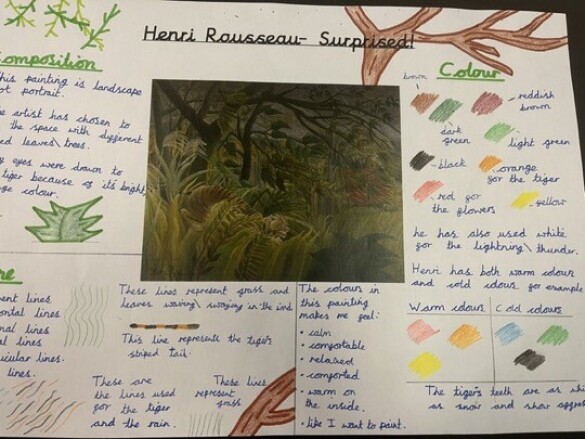 Henri Rousseau- Surprised!
omposition
his painting is landscape
ot portrait.
e artist has chosen to
the space with different
ed leaves\ trees.
y eyes were drawn to
tiger because of its bright
ge colour.
Colour
brown
reddish
brown
dark
green
light green
black
orange
for the tiger
red for
the flowers
yellow
he has also used white
for the lightning\ thunder.
Henri has both warm colours
and cold colours for example
Warm colours
Cold colours
The tiger's teeth are as whi
as snow and show aggres
ne
rent lines
ontal lines
nal lines
l lines
icular lines.
lines.
These lines represent grass and
leaves waving\ swaying in the wind
This line represents the tiger's
striped tail.
These are
the lines used
for the tiger
and the rain.
These lines
represent
grass
The colours in
this painting
makes me feel:
• calm
• comfortable
• relaxed
• comforted
• warm on
the inside.
• like I want to paint.